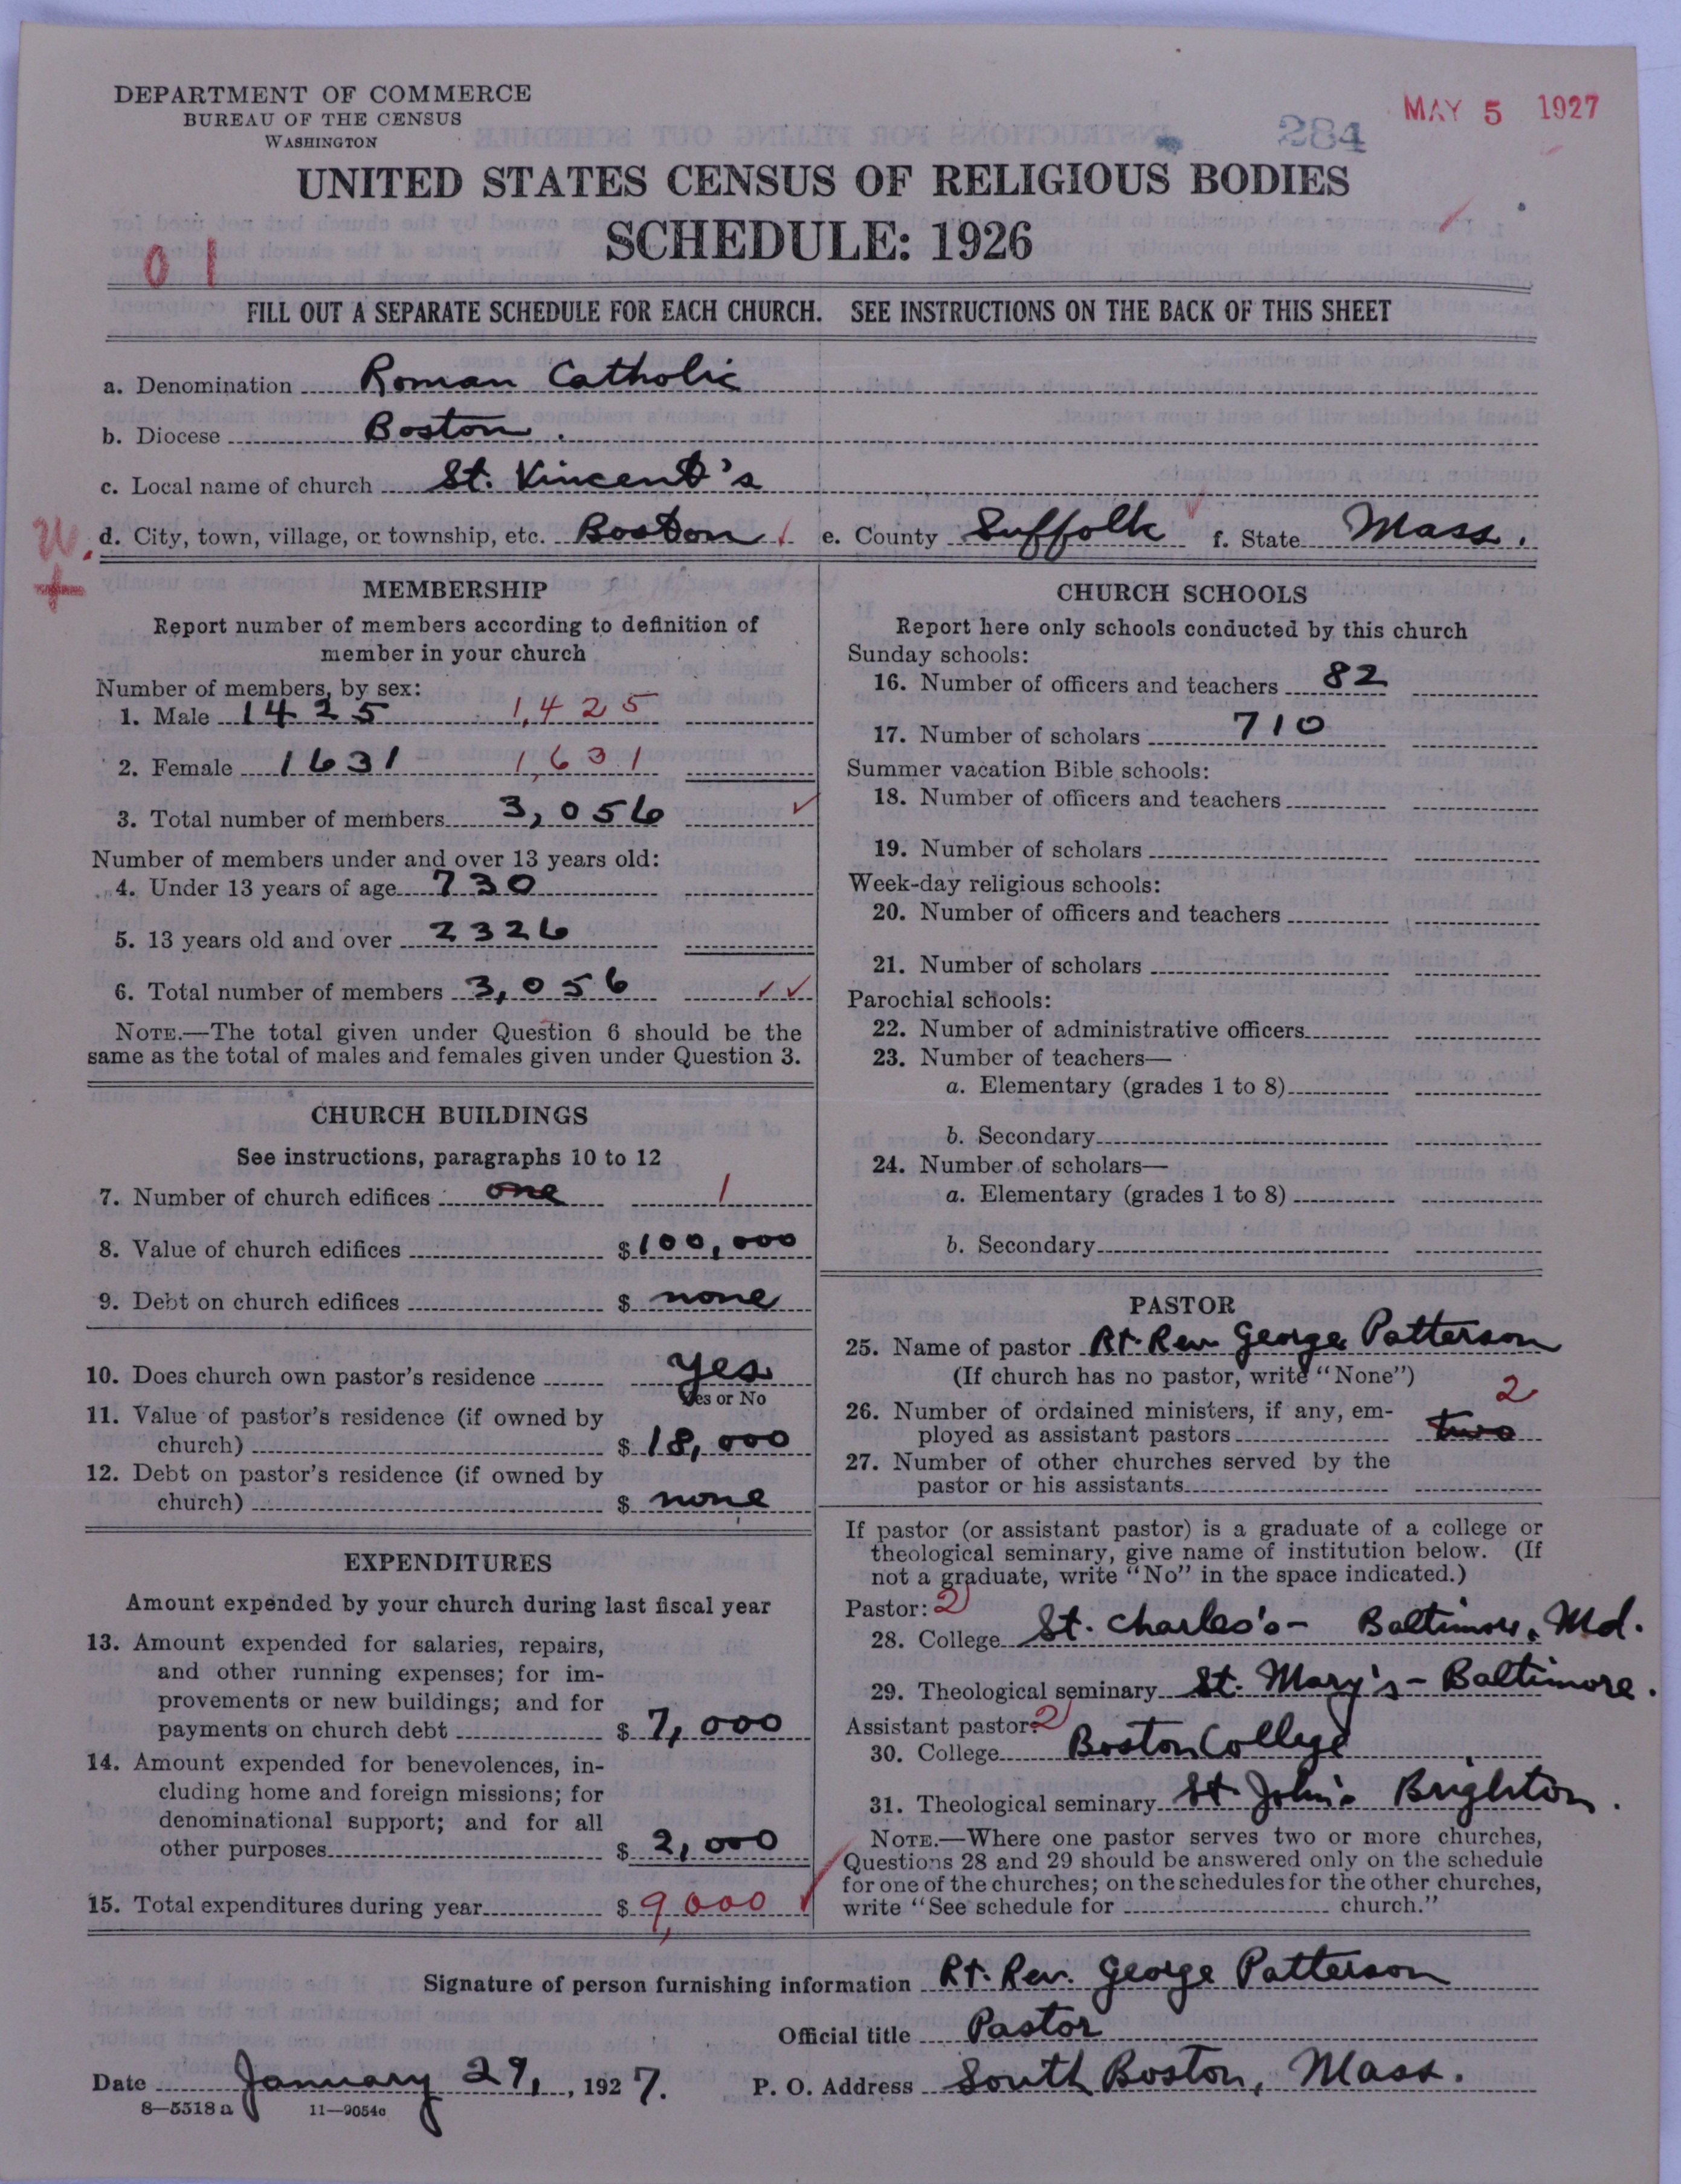 DEPARTMENT OF COMMERCE
BUREAU OF THE CENSUS
WASHINGTON
284
MAY 5 1927
UNITED STATES CENSUS OF RELIGIOUS BODIES
SCHEDULE: 1926
01
FILL OUT A SEPARATE SCHEDULE FOR EACH CHURCH. SEE INSTRUCTIONS ON THE BACK OF THIS SHEET
a. Denomination Roman Catholic
b. Diocese Boston.
c. Local name of church St. Vincent's
W.
d. City, town, village, or township, etc. Boston e. County Suffolk f. State Mass.
MEMBERSHIP
Report number of members according to definition of
member in your church
Number of members, by sex:
1. Male 1425 1,425
2. Female 1631 1,631
3. Total number of members 3,056
Number of members under and over 13 years old:
4. Under 13 years of age 730
5. 13 years old and over 2326
6. Total number of members 3,056
NOTE.—The total given under Question 6 should be the
same as the total of males and females given under Question 3.
CHURCH BUILDINGS
See instructions, paragraphs 10 to 12
7. Number of church edifices one 1
8. Value of church edifices $ 100,000
9. Debt on church edifices $ none
10. Does church own pastor's residence yes
Yes or No
11. Value of pastor's residence (if owned by
church) $ 18,000
12. Debt on pastor's residence (if owned by
church) $ none
EXPENDITURES
Amount expended by your church during last fiscal year
13. Amount expended for salaries, repairs,
and other running expenses; for im-
provements or new buildings; and for
payments on church debt $ 7,000
14. Amount expended for benevolences, in-
cluding home and foreign missions; for
denominational support; and for all
other purposes $ 2,000
15. Total expenditures during year $ 9,000
CHURCH SCHOOLS
Report here only schools conducted by this church
Sunday schools:
16. Number of officers and teachers 82
17. Number of scholars 710
Summer vacation Bible schools:
18. Number of officers and teachers
19. Number of scholars
Week-day religious schools:
20. Number of officers and teachers
21. Number of scholars
Parochial schools:
22. Number of administrative officers
23. Number of teachers—
a. Elementary (grades 1 to 8)
b. Secondary
24. Number of scholars—
a. Elementary (grades 1 to 8)
b. Secondary
PASTOR
25. Name of pastor Rt. Rev George Patterson
(If church has no pastor, write "None")
2
26. Number of ordained ministers, if any, em-
ployed as assistant pastors two
27. Number of other churches served by the
pastor or his assistants
If pastor (or assistant pastor) is a graduate of a college or
theological seminary, give name of institution below. (If
not a graduate, write "No" in the space indicated.)
Pastor: 2
28. College St. Charles's - Baltimore, Md.
29. Theological seminary St. Mary's - Baltimore.
Assistant pastor: 2
30. College Boston College
31. Theological seminary St. John's Brighton.
NOTE.—Where one pastor serves two or more churches,
Questions 28 and 29 should be answered only on the schedule
for one of the churches; on the schedules for the other churches,
write "See schedule for church."
Signature of person furnishing information Rt. Rev. George Patterson
Official title Pastor
Date January 29, 1927. P. O. Address South Boston, Mass.
8—5518 a 11—9054c